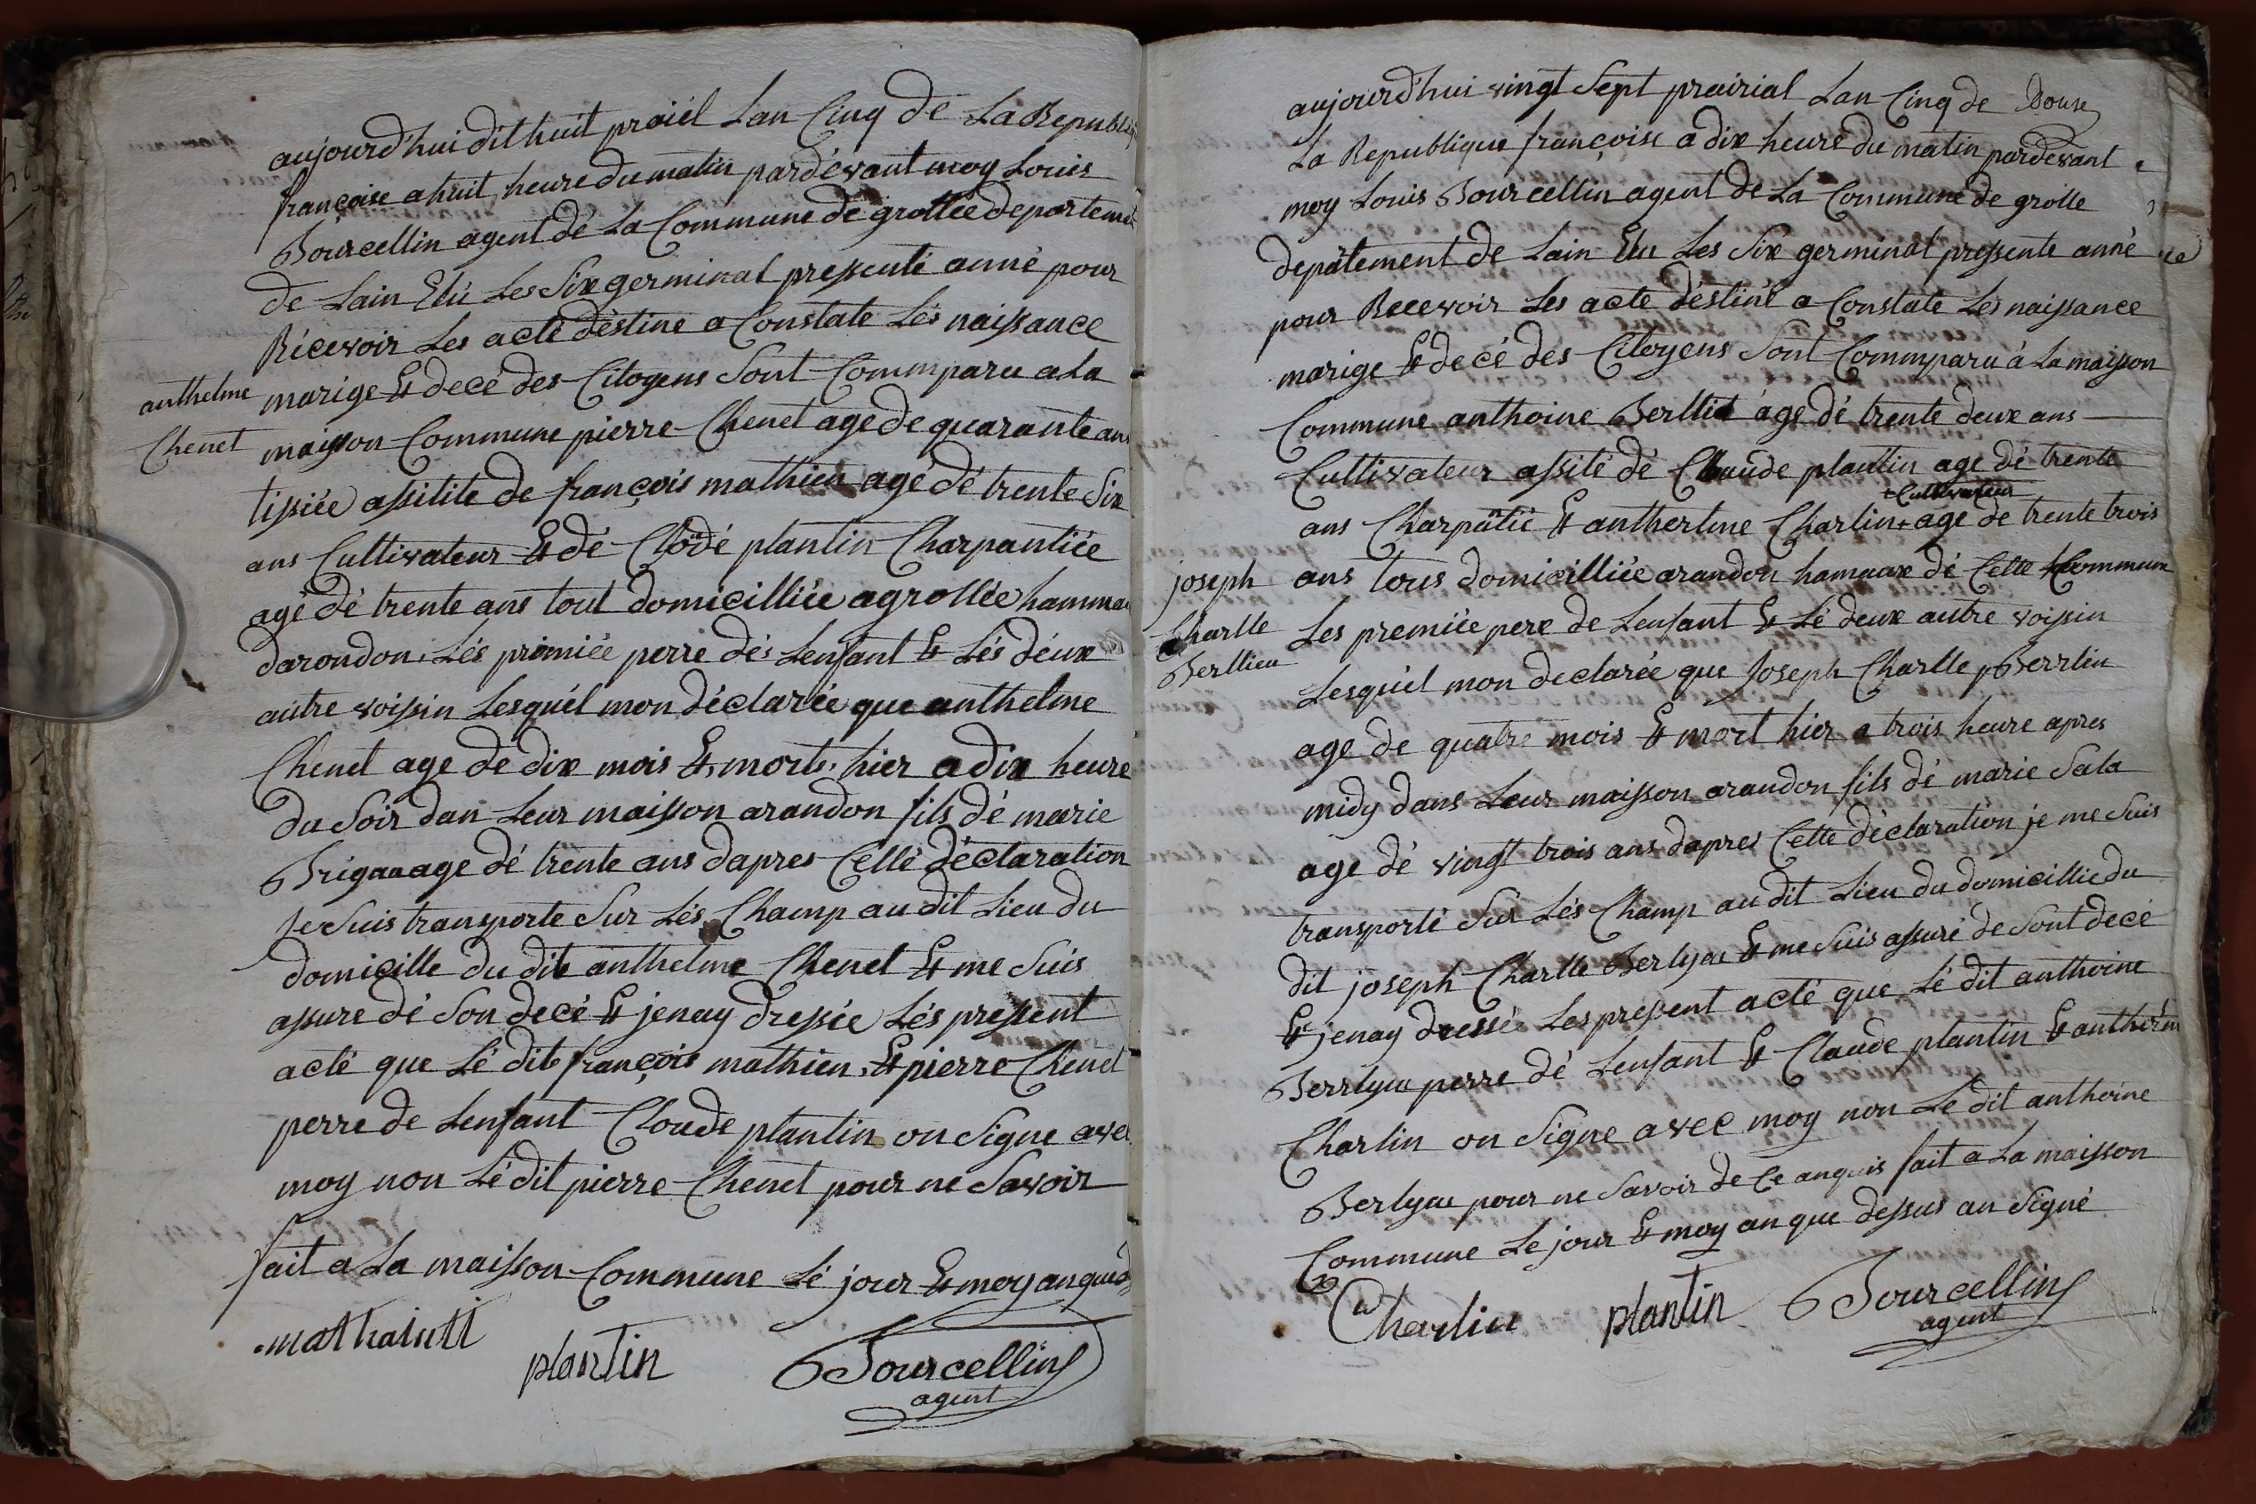 aujourd'hui dit huit praiel Lan Cinq de La Republi
françoise a huit heure du matin pardevant moy Louis
Bourcellin agent de La Commune de grollée departement
de Lain Elu Les Six germinal pressente anné pour
Récevoir Les acte déstine a Constate Lés naissance
anthelme
Chenet
marige & decé des Citoyens Sont Commparu a La
maisson Commune pierre Chenet age de quarante ans
tissiée assitite de françois mathieu agé dé trente Six
ans Cultivateur & dé Clodé plantin Charpantiée
agé dé trente ans tout domicilliée a grollée hammau
darondon Lés premiée perre dés Lenfant & Lés déux
autre voissin Lesquél mon déclarée que anthelme
Chenet age de dix mois & mort hier a dix heure
du Soir dan Leur maisson arandon fils dé marie
Brigaa age dé trente ans dapres Celle déclaration
Je Suis transporte Sur Lés Champ au dit Lieu du
domicille du dit anthelme Chenet & me Suis
assure dé Son decé & jenay dressée Lés pressent
acté que Lé dit françois mathieu & pierre Chenet
perre de Lenfant Cloude plantin on Signe avec
moy non Lé dit pierre Chenet pour ne Savoir
fait a La maisson Commune Lé jour & moy an que d
plantin
Bourcellin
agent
aujourd'hui vingt Sept prairial Lan Cinq de Douse
La Republique françoise a dix heure du matin pardevant
moy Louis Bourcellin agent de La Commune de grolle
depâtement de Lain Elu Les Six germinal pressente anné
pour Recevoir Les acte déstiné a Constate Lés naissance
marige & decé des Citoyens Sont Commparu à La maisson
Commune anthoine Berllit áge dé trente deux ans
Cultivateur assité dé Claude plantin age dé trente
+ Cultivateur
ans Charpâtié & antherlme Charlin + age de trente trois
joseph
Charlle
Berllieu
ans tous domicilliée arandon hamaux dé Cette Commune
Les premiée pere de Lenfant & Lé deux autre voissin
Lesquél mon declarée que Joseph Charlle Berrlin
age de quatre mois & mort hier a trois heure apres
midy dans Leur maisson arandon fils dé marie Sala
age dé vingt trois ans dapres Cette déclaration je me Suis
transporté Sur Lés Champ au dit Lieu du domicillie du
dit joseph Charlle Berlyou & me Suis assuré de Sont decé
& jenay dressée Les pressent acté que Lé dit anthoine
Berrlyou perre dé Lenfant & Claude plantin & antherm
Charlin on Signe avec moy non Lé dit anthoine
Berlyou pour ne Savoir de Ce anquis fait a La maisson
Commune Le jour & moy an que dessus an Signé
Charlin plantin Bourcellin
agent